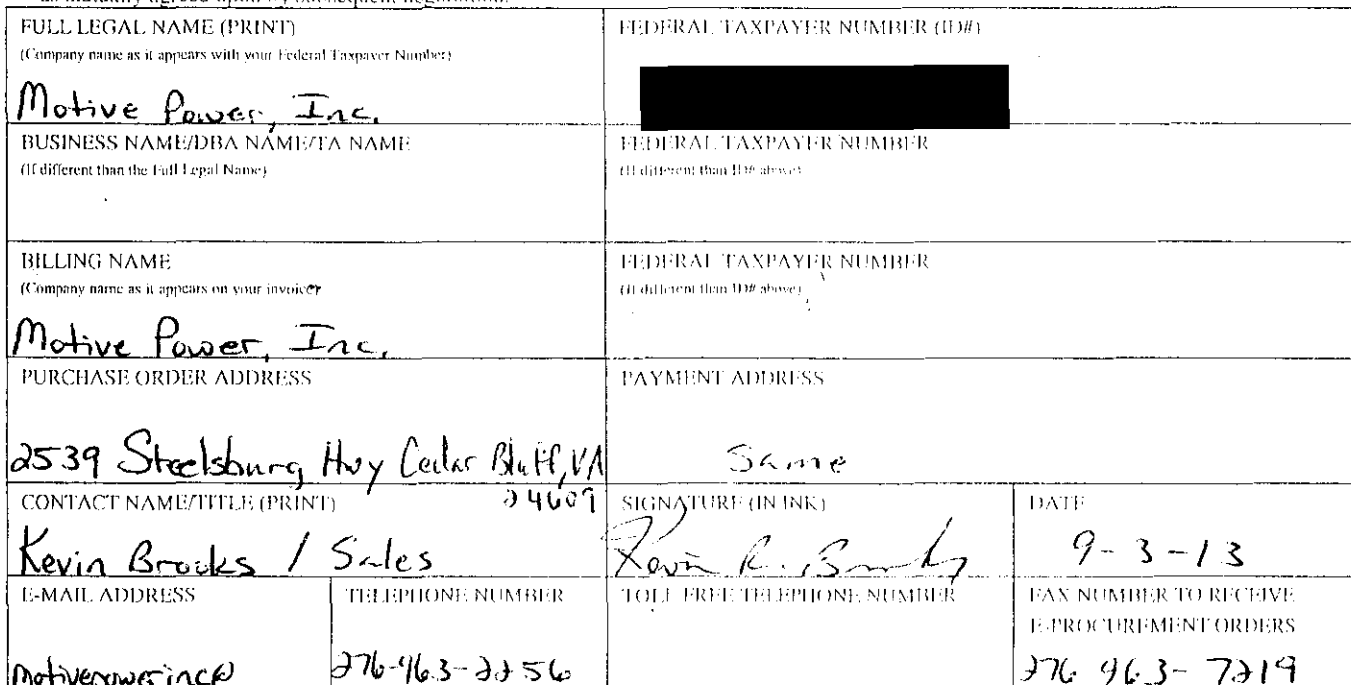 as mutually agreed upon by subsequent negotiation.
FULL LEGAL NAME (PRINT)
(Company name as it appears with your Federal Taxpayer Number)
Motive Power, Inc.
FEDERAL TAXPAYER NUMBER (ID#)
BUSINESS NAME/DBA NAME/TA NAME
(If different than the Full Legal Name)
FEDERAL TAXPAYER NUMBER
(If different than ID# above)
BILLING NAME
(Company name as it appears on your invoice)
Motive Power, Inc.
FEDERAL TAXPAYER NUMBER
(If different than ID# above)
PURCHASE ORDER ADDRESS
2539 Steelsburg Hwy Cedar Bluff, VA
24609
PAYMENT ADDRESS
Same
CONTACT NAME/TITLE (PRINT)
Kevin Brooks / Sales
SIGNATURE (IN INK)
Kevin R.
DATE
9-3-13
E-MAIL ADDRESS
motivepowerinc@
TELEPHONE NUMBER
276-963-2256
TOLL FREE TELEPHONE NUMBER
FAX NUMBER TO RECEIVE
E-PROCUREMENT ORDERS
276 963-7219